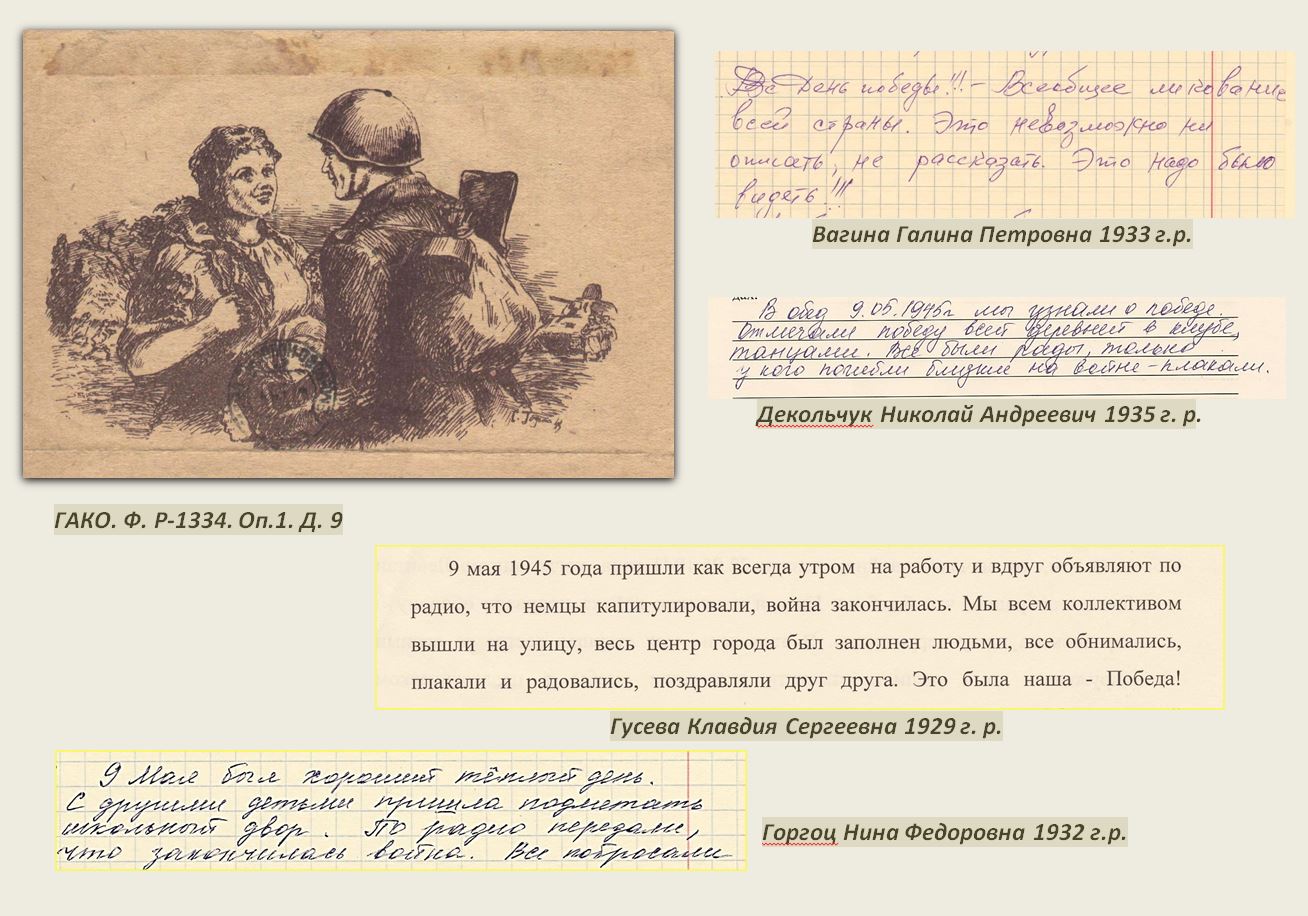 День победы!!! - Всеобщее ликование
всей страны. Это невозможно ни
описать, не рассказать. Это надо было
видеть!!!
Вагина Галина Петровна 1933 г.р.
В обед 9.05.1945г мы узнали о победе.
Отмечали победу всей деревней в клубе,
танцами. Все были рады, только
у кого погибли близкие на войне - плакали.
Декольчук Николай Андреевич 1935 г. р.
ГАКО. Ф. Р-1334. Оп.1. Д. 9
9 мая 1945 года пришли как всегда утром на работу и вдруг объявляют по
радио, что немцы капитулировали, война закончилась. Мы всем коллективом
вышли на улицу, весь центр города был заполнен людьми, все обнимались,
плакали и радовались, поздравляли друг друга. Это была наша - Победа!
Гусева Клавдия Сергеевна 1929 г. р.
9 Мая был хороший тёплый день.
С другими детьми пришла подметать
школьный двор. По радио передали,
что закончилась война. Все побросали
Горгоц Нина Федоровна 1932 г.р.